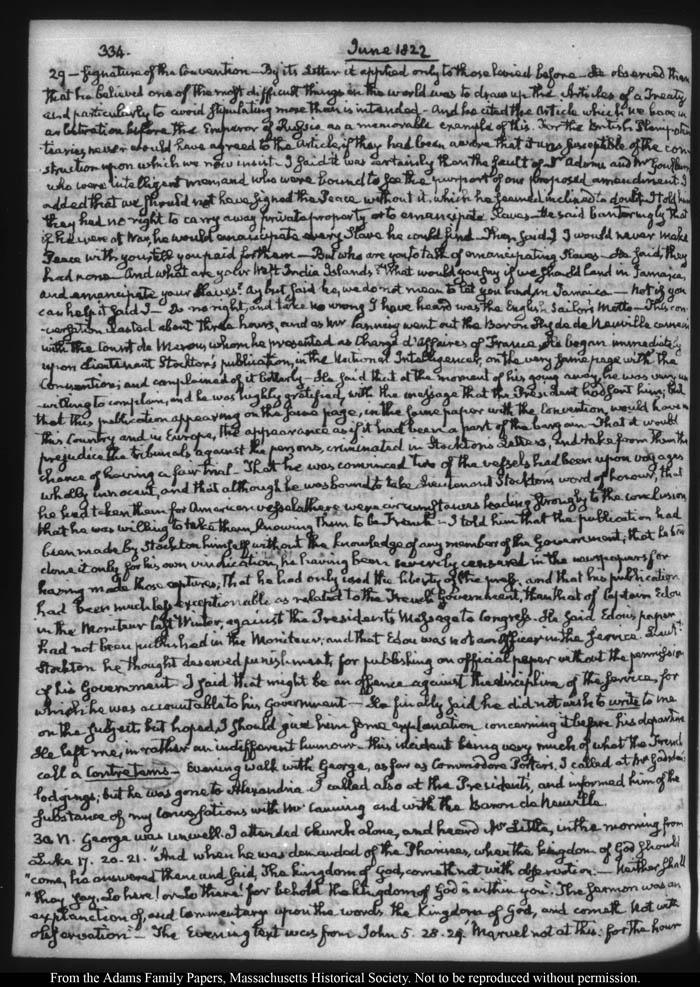 334. June 1822
29 — Signature of the Convention — By its Letter it applied only to those carried before — He observed then
that he believed one of the most difficult things in the world was to draw up the Articles of a Treaty
and particularly to avoid stipulating more than is intended — And he cited the Article which we have in
arbitration before the Emperor of Russia as a memorable example of this. For the British Plenipoten
tiaries never would have agreed to the Article, if they had been aware that it was susceptible of the con
struction upon which we now insist — I said it was certainly then the fault of Mr Adams and Mr Goulburn
who were intelligent men, and who were bound to see the purport of our proposed amendment. I
added that we should not have signed the Peace without it, which he seemed inclined to doubt. I told him
they had no right to carry away private property or to emancipate Slaves — He said banteringly that
if he were at War, he would emancipate every Slave he could find — Then, said I, I would never make
Peace with you, till you paid for them — But who are you to talk of emancipating Slaves — He said, they
had none — And what are your West India Islands? What would you say if we should land in Jamaica,
and emancipate your Slaves? Ay but said he, we do not mean to let you land in Jamaica — Not if you
can help it said I — Do no right, and take no wrong I have heard was the English Sailor's Motto — This con
versation lasted about three hours, and as Mr Canning went out the Baron Hyde de Neuville came in
with the Count de Menou, whom he presented as Chargé d'Affaires of France. He began immediately
upon Lieutenant Stockton's publication, in the National Intelligencer, on the very same page with the
Convention; and complained of it bitterly — He said that at the moment of his going away, he was very un
willing to complain, and he was highly gratified, with the message that the President had sent him; but
that this publication appearing on the same page, in the same paper with the Convention would have in
this Country and in Europe, the appearance as if it had been a part of the bargain — That it would
prejudice the tribunals against the persons, criminated in Stockton's Letters, and take from them the
chance of having a fair trial. That he was convinced two of the vessels had been upon voyages
wholly innocent, and that although he was bound to take Lieutenant Stockton's word of honour, that
he had taken them for American vessels there were circumstances leading strongly to the conclusion
that he was willing to take them, knowing them to be French — I told him that the publication had
been made by Stockton himself without the knowledge of any member of the Government; that he had
done it only for his own vindication, he having been severely censured in the newspapers for
having made those captures; That he had only used the liberty of the press, and that his publication
had been much less exceptionable as related to the French Government, than that of Captain Edou
in the Moniteur last Winter, against the President's Message to Congress. He said Edou's paper
had not been published in the Moniteur, and that Edou was not an Officer in the service. Lieut.
Stockton he thought deserved punishment, for publishing an official paper without the permission
of his Government. I said that might be an offence against the discipline of the Service, for
which he was accountable to his Government — He finally said he did not wish to write to me
on the subject, but hoped, I should give him some explanation concerning it before his departure
He left me, in rather an indifferent humour — this incident being very much of what the French
call a Contretems — Evening walk with George, as far as Commodore Porter's. I called at Mr Gadsden's
lodgings; but he was gone to Alexandria. I called also at the President's, and informed him of the
substance of my conversations with Mr Canning and with the Baron de Neuville.
30. VI. George was unwell. I attended church alone, and heard Mr Little, in the morning from
Luke 17. 20. 21. "And when he was demanded of the Pharisees, when the kingdom of God should
"come, he answered them and said, The kingdom of God, cometh not with observation. — Neither shall
"they say, Lo here! or Lo there! for behold the kingdom of God is within you." The sermon was an
explanation of, and commentary upon the words the kingdom of God, and cometh not with
observation. — The Evening text was from John 5. 28. 29. Marvel not at this: for the hour
From the Adams Family Papers, Massachusetts Historical Society. Not to be reproduced without permission.